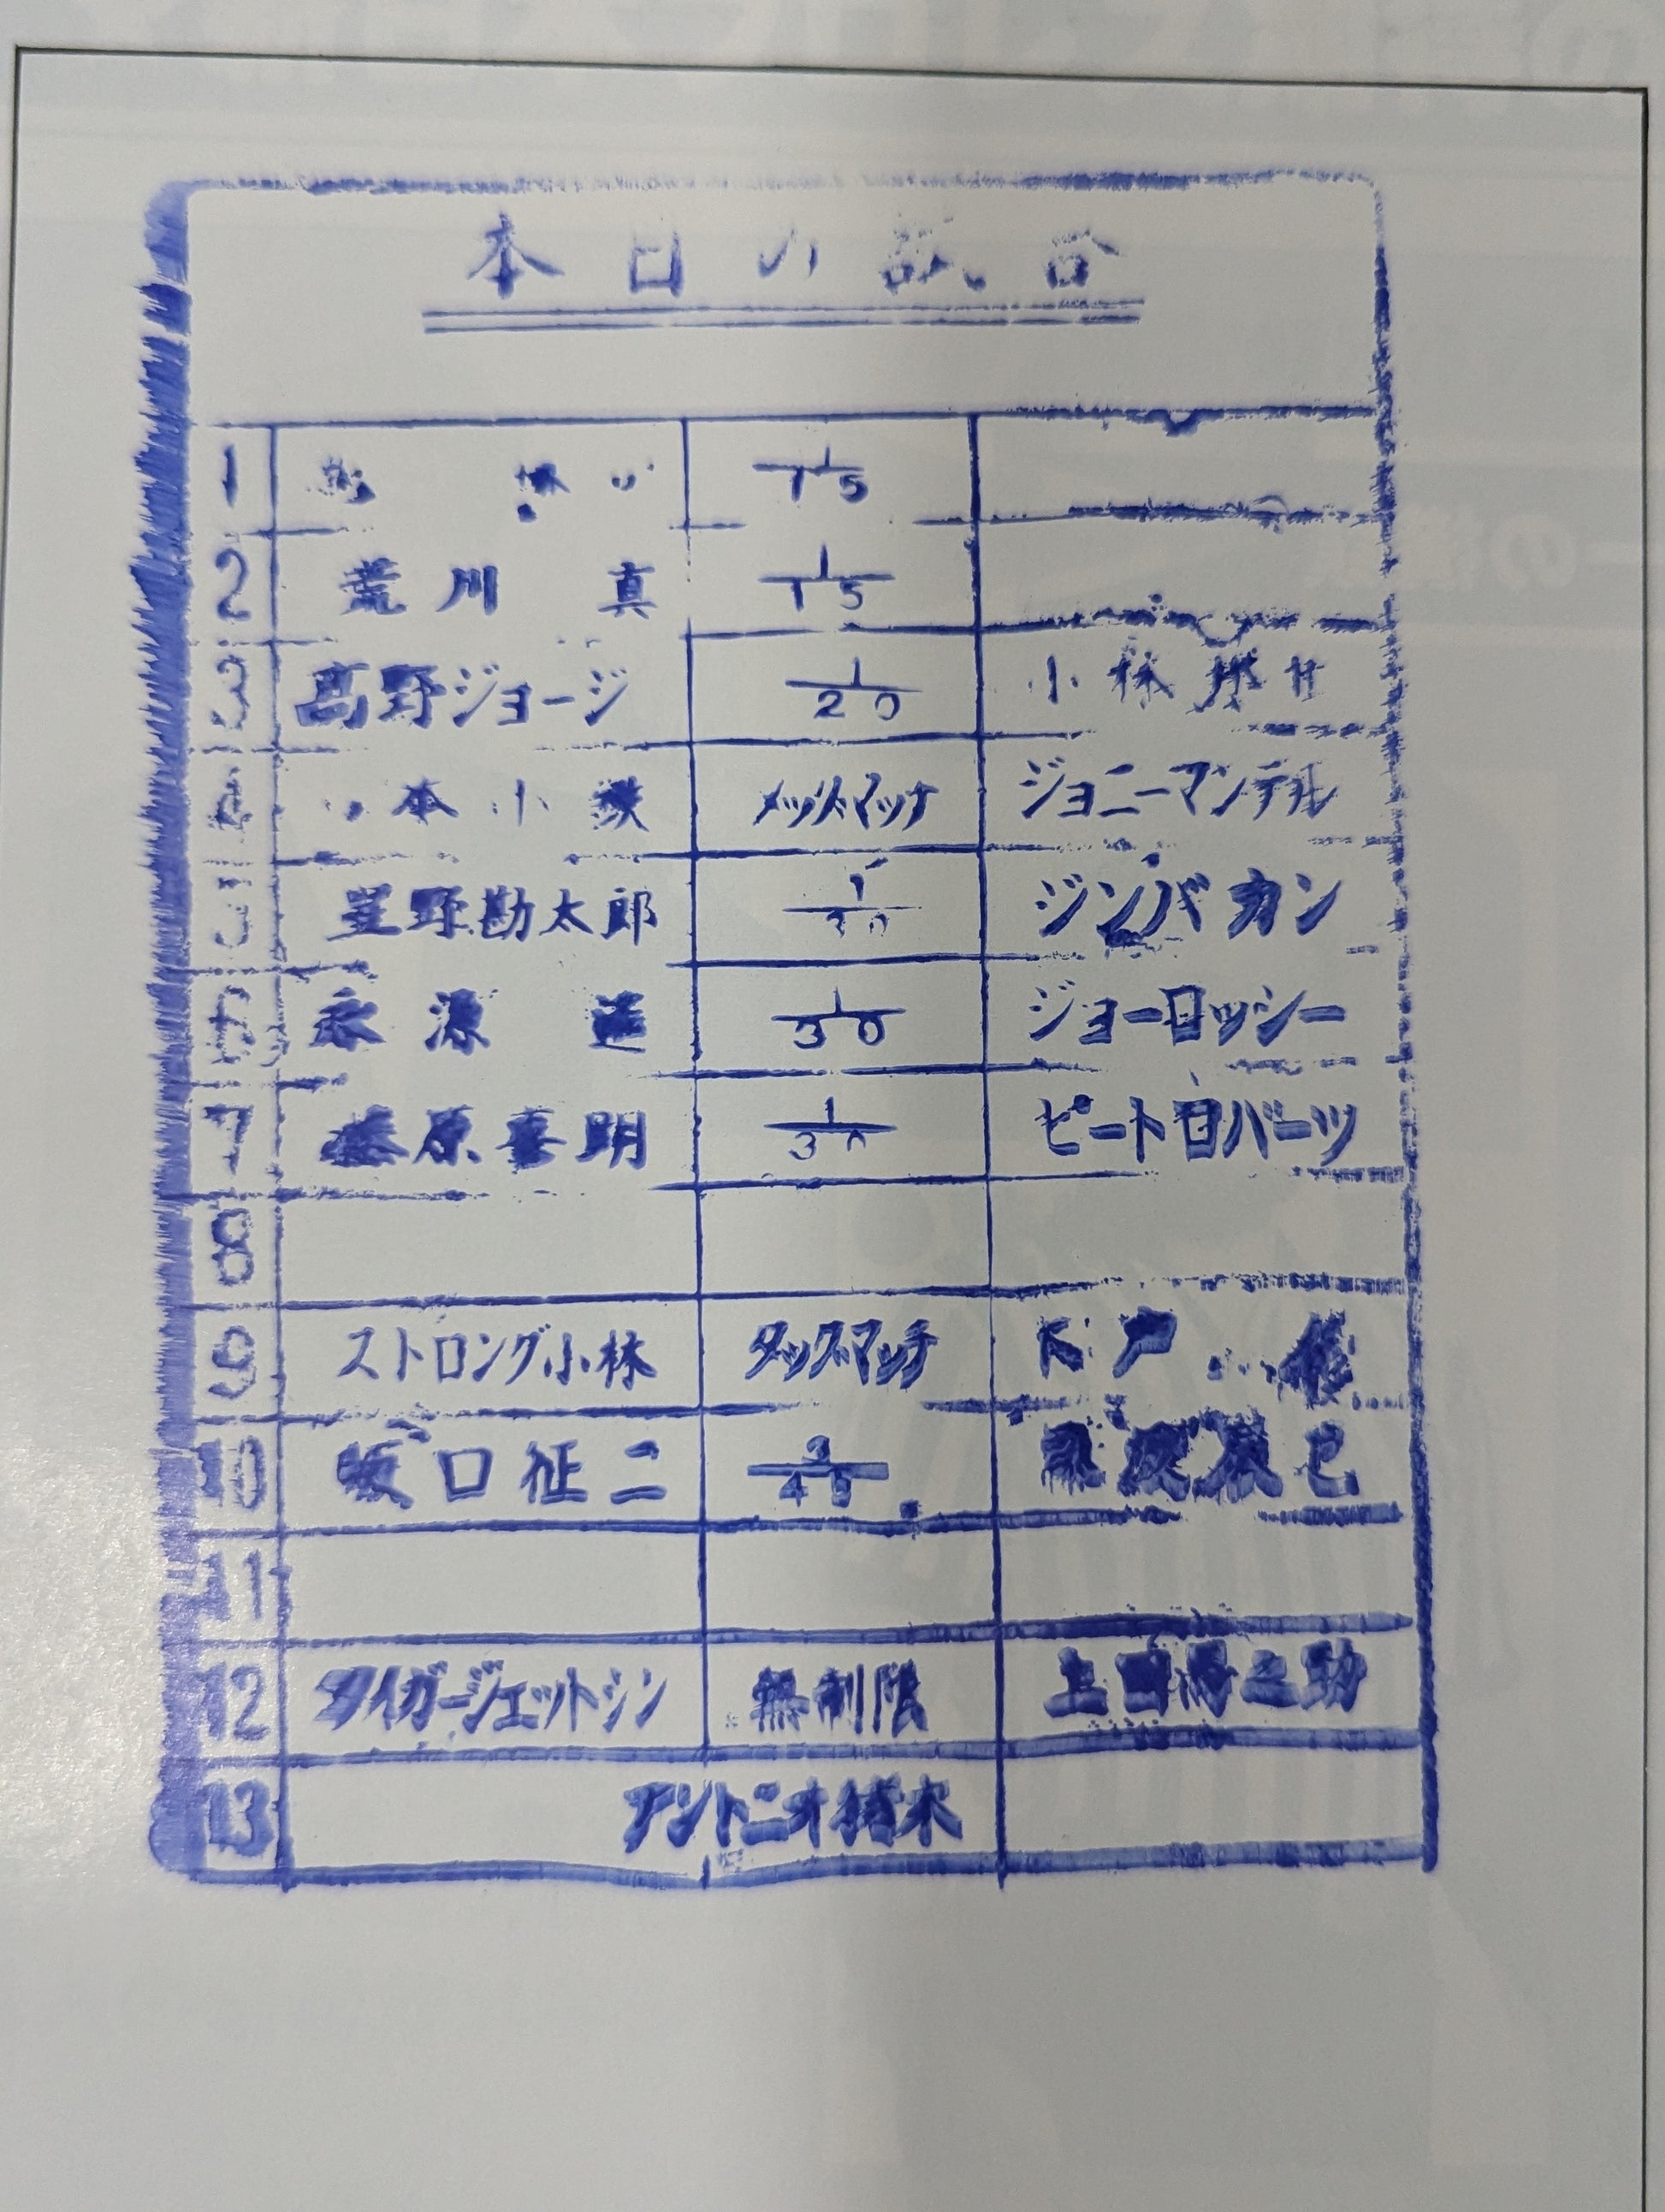 本日の試合
1 1/15
2 荒川 真 1/15
3 高野ジョージ 1/20 小林邦
4 本小鉄 ジョニーマンテル
5 星野勘太郎 1/30 ジンバカン
6 永源 遥 1/30 ジョーロッシー
7 藤原喜明 1/30 ピートロバーツ
8
9 ストロング小林 タッグマッチ 木戸 修
10 坂口征二 3/45 藤波辰巳
11
12 タイガージェットシン 無制限 上田馬之助
13 アントニオ猪木